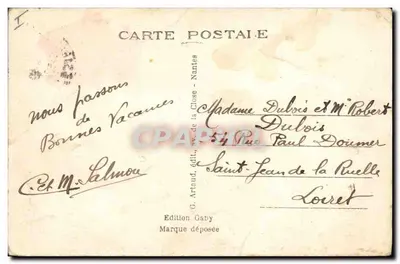 I
CARTE POSTALE
nous passons
de
Bonnes Vacances
C. et M. Salmon
G. Artaud, édit., de la Close - Nantes
Madame Dubois et Mr Robert
Dubois
54 Rue Paul Doumer
Saint-Jean de la Ruelle
Loiret
Edition Gaby
Marque déposée